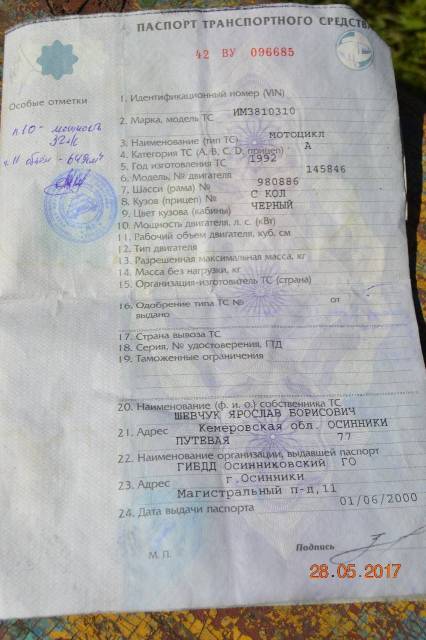 ПАСПОРТ ТРАНСПОРТНОГО СРЕДСТВА
42 ВУ 096685
Особые отметки
п.10 - мощность
32 л.с
п.11 объём - 649 см³
1. Идентификационный номер (VIN)
2. Марка, модель ТС ИМЗ810310
3. Наименование (тип ТС) МОТОЦИКЛ
4. Категория ТС (А, В, С, D, прицеп) А
5. Год изготовления ТС 1992
6. Модель, № двигателя 145846
7. Шасси (рама) № 980886
8. Кузов (прицеп) № С КОЛ
9. Цвет кузова (кабины) ЧЕРНЫЙ
10. Мощность двигателя, л. с. (кВт)
11. Рабочий объем двигателя, куб. см
12. Тип двигателя
13. Разрешенная максимальная масса, кг
14. Масса без нагрузки, кг
15. Организация-изготовитель ТС (страна)
16. Одобрение типа ТС № от
выдано
17. Страна вывоза ТС
18. Серия, № удостоверения, ГТД
19. Таможенные ограничения
20. Наименование (ф. и. о.) собственника ТС
ШЕВЧУК ЯРОСЛАВ БОРИСОВИЧ
21. Адрес Кемеровская обл. ОСИННИКИ
ПУТЕВАЯ 77
22. Наименование организации, выдавшей паспорт
ГИБДД Осинниковский ГО
23. Адрес г.Осинники
Магистральный п-д,11
24. Дата выдачи паспорта 01/06/2000
М. П.
Подпись
28.05.2017